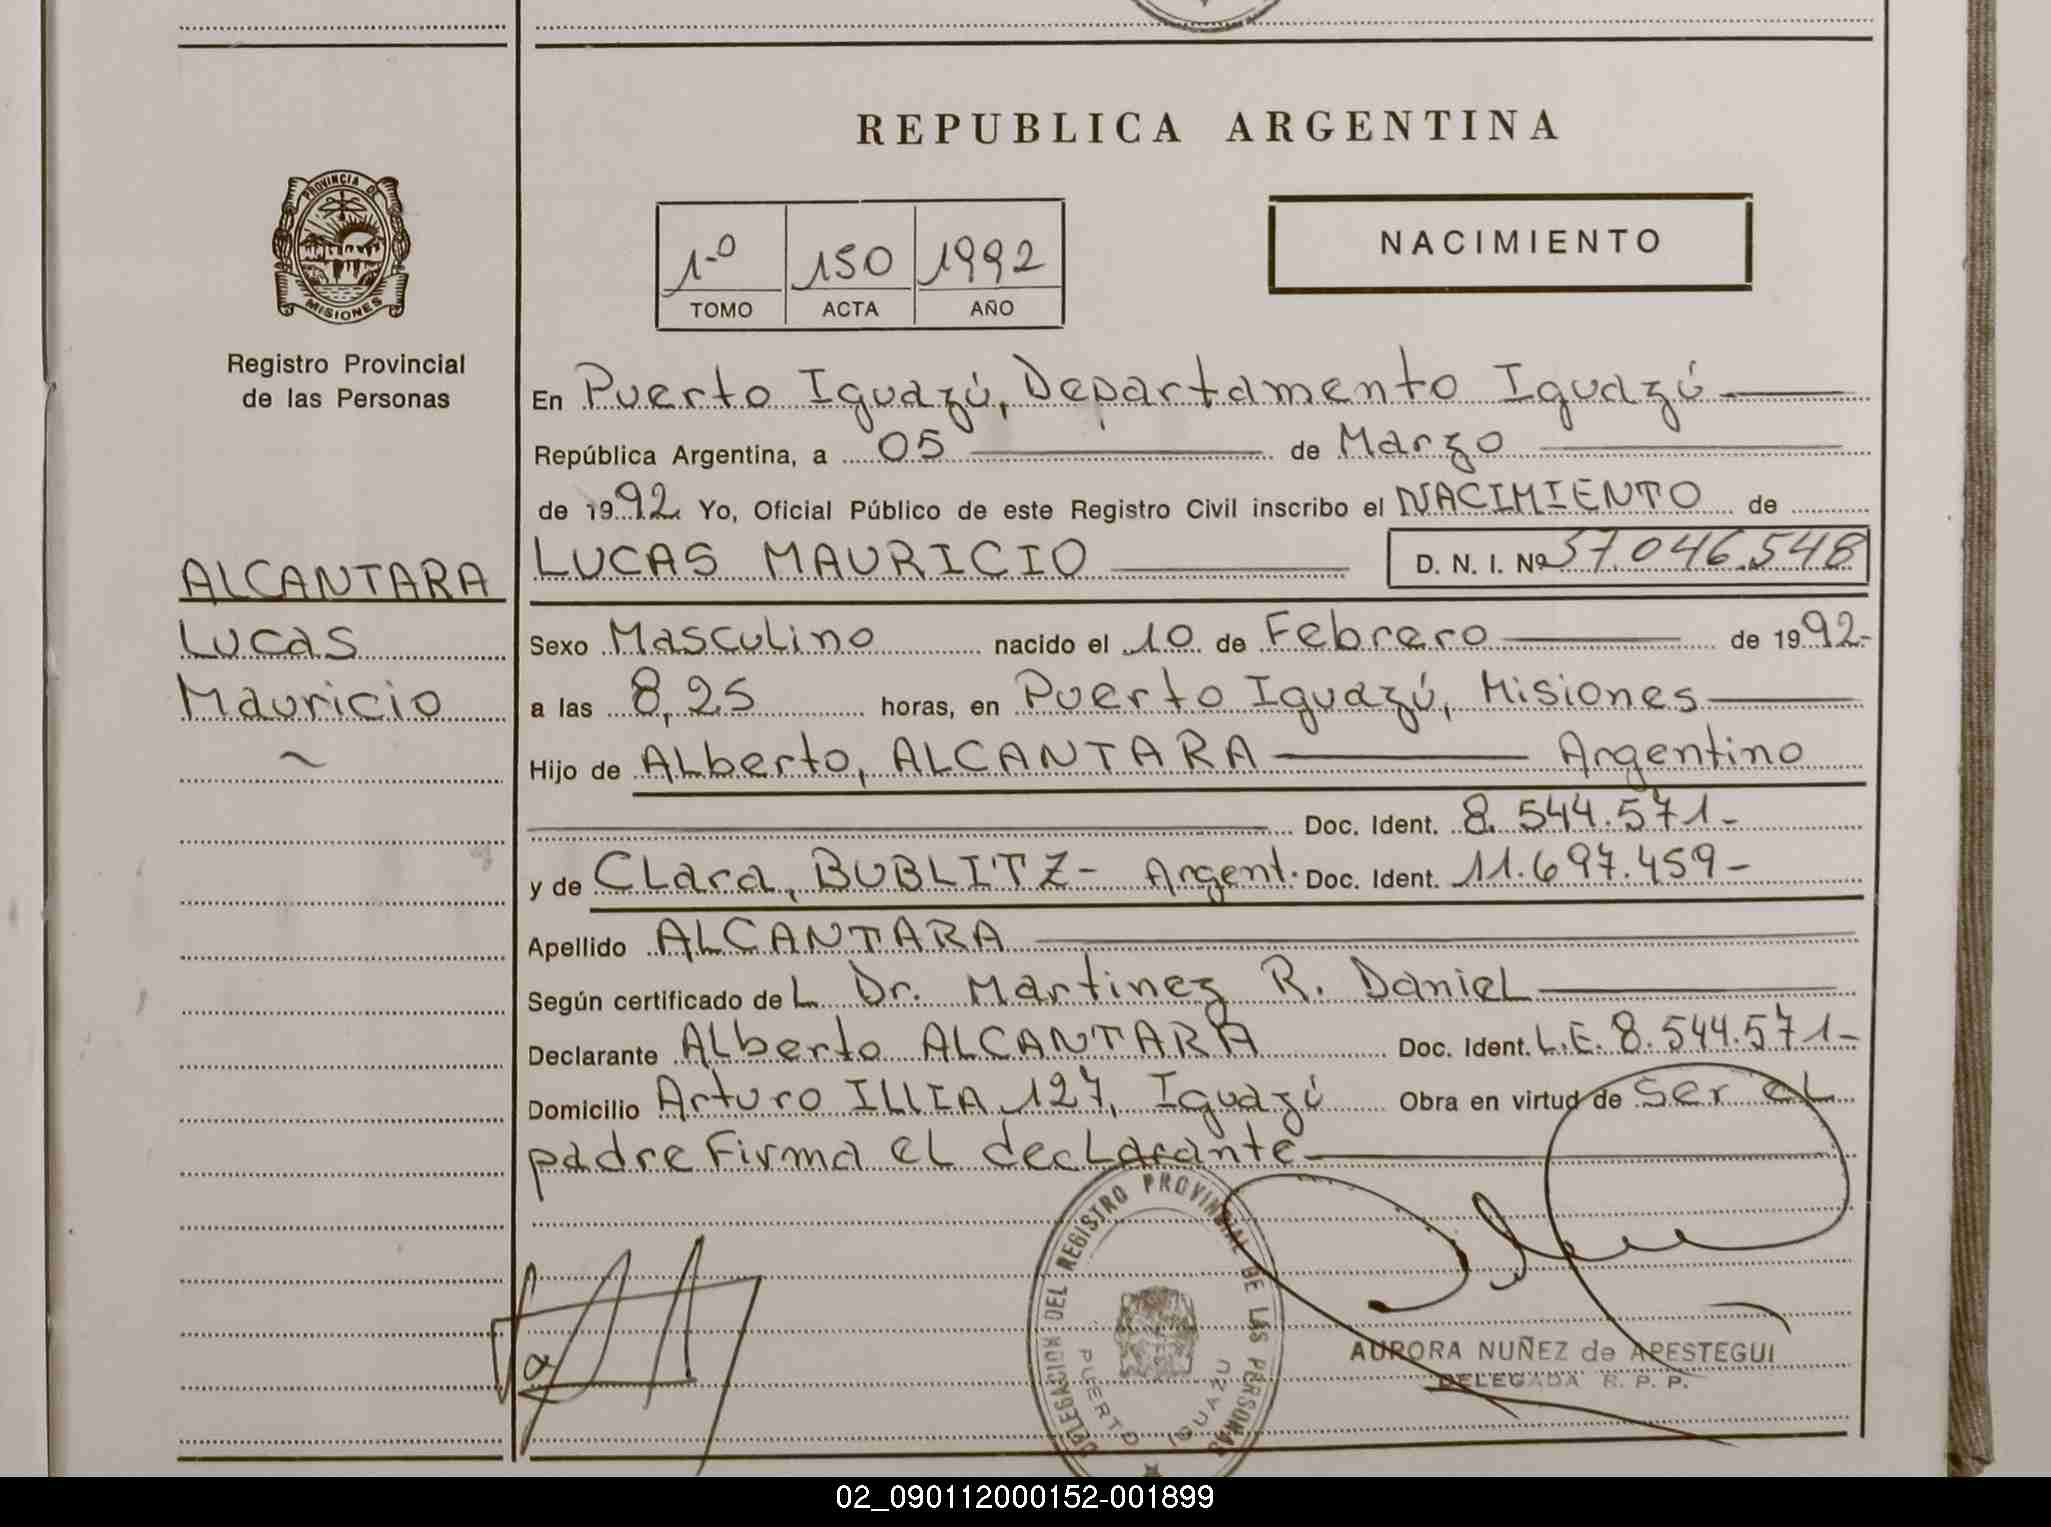 REPUBLICA ARGENTINA
PROVINCIA DE
MISIONES
Registro Provincial
de las Personas
1º 150 1992
TOMO ACTA AÑO
NACIMIENTO
En Puerto Iguazú, Departamento Iguazú
República Argentina, a 05 de Marzo
de 1992 Yo, Oficial Público de este Registro Civil inscribo el NACIMIENTO de
LUCAS MAURICIO D. N. I. Nº 37.046.548
ALCANTARA
Lucas
Mauricio
Sexo Masculino nacido el 10 de Febrero de 1992-
a las 8,25 horas, en Puerto Iguazú, Misiones
Hijo de Alberto, ALCANTARA Argentino
Doc. Ident. 8.544.571-
y de Clara, BUBLITZ- Argent. Doc. Ident. 11.697.459-
Apellido ALCANTARA
Según certificado de L Dr. Martinez R. Daniel
Declarante Alberto ALCANTARA Doc. Ident. L.E. 8.544.571-
Domicilio Arturo ILLIA 127, Iguazú Obra en virtud de ser el
padre Firma el declarante
DELEGACION DEL REGISTRO PROVINCIAL DE LAS PERSONAS
PUERTO IGUAZU
AURORA NUÑEZ de APESTEGUI
DELEGADA R. P. P.
02_090112000152-001899